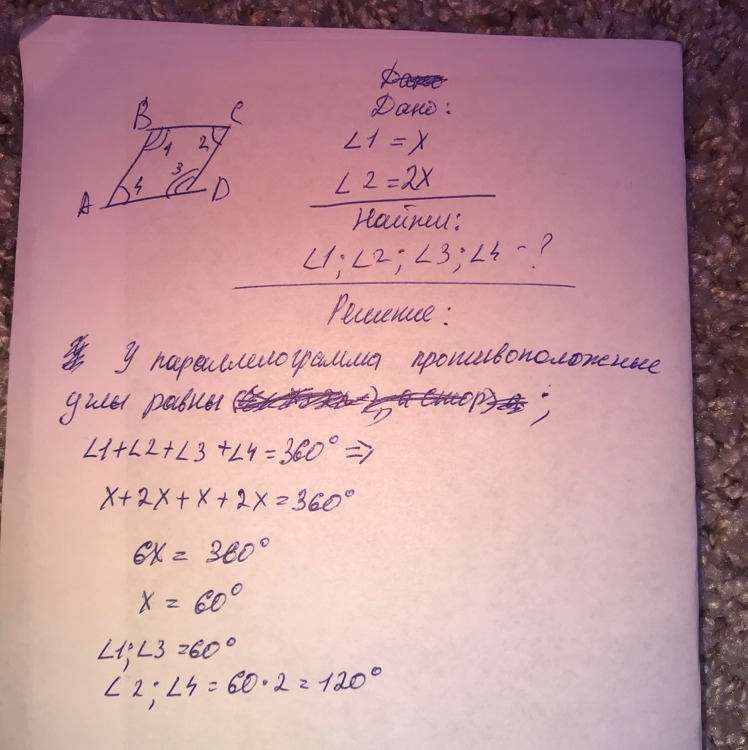 Дано:
B C
1 2
3
4
A D
∠1 = x
∠2 = 2x
Найти:
∠1; ∠2; ∠3; ∠4 - ?
Решение:
У параллелограмма противоположные
углы равны ;
∠1+∠2+∠3+∠4=360° =>
x+2x+x+2x=360°
6x = 360°
x = 60°
∠1;∠3=60°
∠2; ∠4 = 60·2=120°